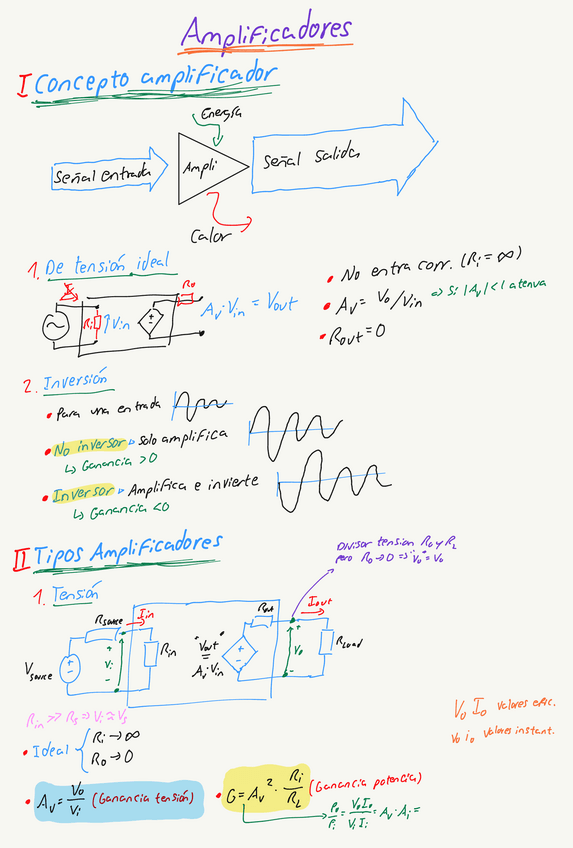 Amplificadores
I Concepto amplificador
Energía
Señal entrada
Ampli
Señal salida
Calor
1. De tensión ideal
I
Ri
Vin
Ro
Av·Vin = Vout
• No entra corr. (Ri = ∞)
• Av = Vo/Vin ⇒ Si |Av| < 1 atenua
• Rout = 0
2. Inversión
• Para una entrada
• No inversor ▹ solo amplifica
↳ Ganancia > 0
• Inversor ▹ Amplifica e invierte
↳ Ganancia < 0
II Tipos Amplificadores
Divisor tension Ro y RL
pero Ro → 0 => "Vo" = Vo
1. Tensión
Rsource
Iin
Rout
Iout
Vsource
+
-
+
Vi
-
Rin
"Vout"
=
Av·Vin
+
-
+
Vo
-
RLoad
Rin >> Rs ⇒ Vi ≃ Vs
• Ideal { Ri → ∞
Ro → 0
Vo Io Valores efic.
vo io Valores instant.
• Av = Vo/Vi (Ganancia tensión)
• G = Av² · Ri/RL (Ganancia potencia)
Po/Pi = VoIo/ViIi = Av·Ai =